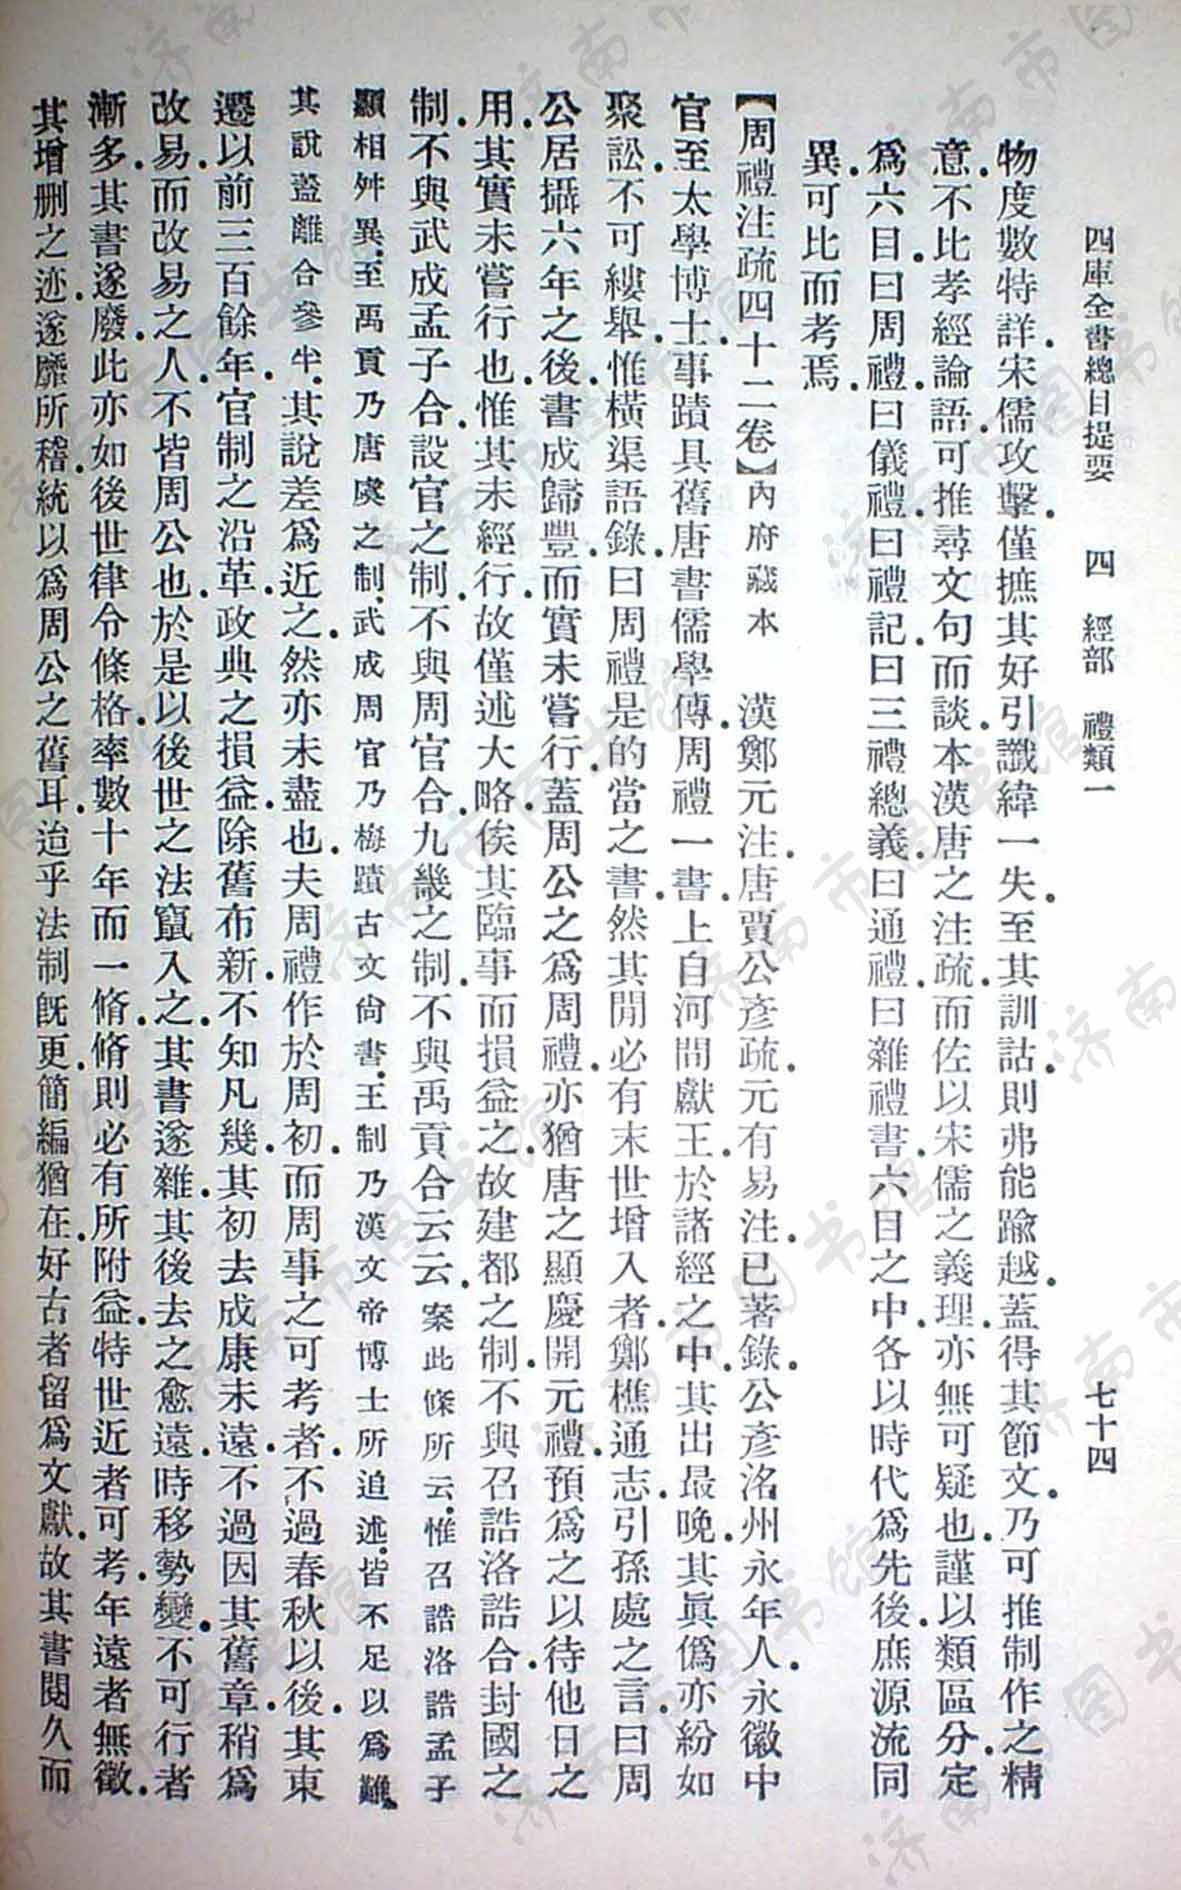 四庫全書總目提要　四　經部　禮類一　七十四
物度數特詳.宋儒攻擊.僅摭其好引讖緯一失.至其訓詁.則弗能踰越.蓋得其節文.乃可推制作之精
意.不比孝經論語.可推尋文句而談.本漢唐之注疏.而佐以宋儒之義理.亦無可疑也.謹以類區分.定
爲六目.曰周禮.曰儀禮.曰禮記.曰三禮總義.曰通禮.曰雜禮書.六目之中.各以時代爲先後.庶源流同
異.可比而考焉.
【周禮注疏四十二卷】內府藏本　漢鄭元注.唐賈公彥疏.元有易注.已著錄.公彥洺州永年人.永徽中
官至太學博士.事蹟具舊唐書儒學傳.周禮一書.上自河間獻王.於諸經之中.其出最晚.其眞僞亦紛如
聚訟.不可縷舉.惟橫渠語錄曰.周禮是的當之書.然其間必有末世增入者.鄭樵通志.引孫處之言曰.周
公居攝六年之後.書成歸豐.而實未嘗行.蓋周公之爲周禮.亦猶唐之顯慶開元禮.預爲之以待他日之
用.其實未嘗行也.惟其未經行.故僅述大略.俟其臨事而損益之.故建都之制.不與召誥洛誥合.封國之
制.不與武成孟子合.設官之制.不與周官合.九畿之制.不與禹貢合云云.案此條所云.惟召誥洛誥孟子
顯相舛異.至禹貢乃唐虞之制.武成周官乃梅賾古文尚書.王制乃漢文帝博士所追述.皆不足以爲難.
其說蓋離合參半.其說差爲近之.然亦未盡也.夫周禮作於周初.而周事之可考者.不過春秋以後.其東
遷以前三百餘年.官制之沿革.政典之損益.除舊布新.不知凡幾.其初去成康未遠.不過因其舊章.稍爲
改易.而改易之人.不皆周公也.於是以後世之法竄入之.其書遂雜.其後去之愈遠.時移勢變.不可行者
漸多.其書遂廢.此亦如後世律令條格.率數十年而一脩.脩則必有所附益.特世近者可考.年遠者無徵.
其增删之迹.遂靡所稽.統以爲周公之舊耳.迨乎法制旣更.簡編猶在.好古者留爲文獻.故其書閱久而